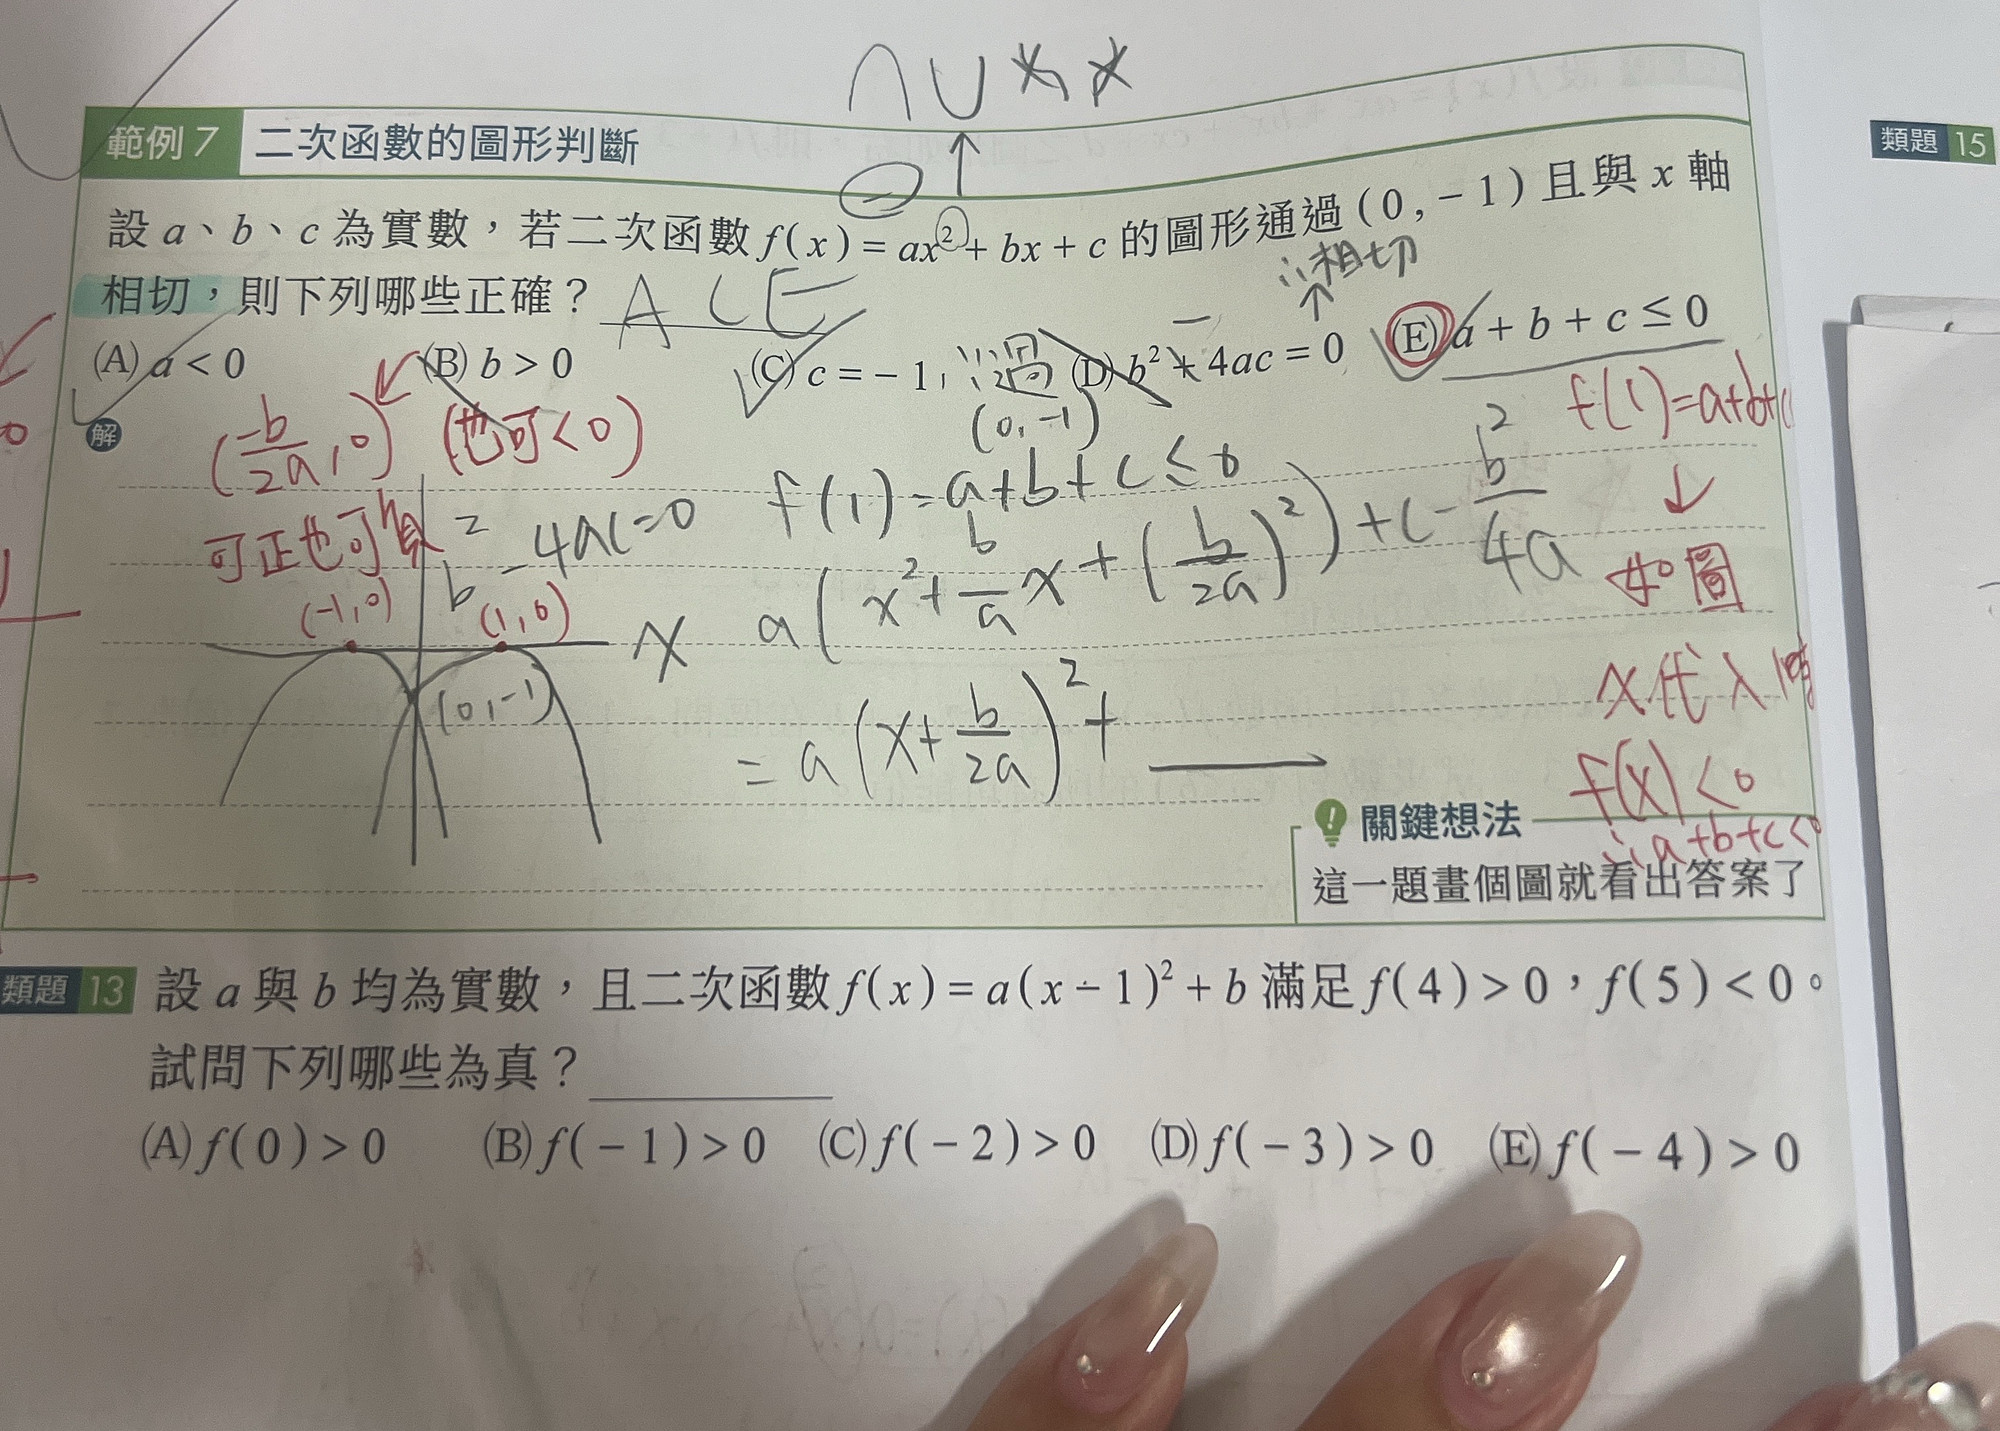 ∩ ∪
類題 15
範例 7 二次函數的圖形判斷
設 a、b、c 為實數，若二次函數 f(x) = ax² + bx + c 的圖形通過 (0, -1) 且與 x 軸
相切，則下列哪些正確？ A C E
∵相切
(A) a < 0 (B) b > 0 (C) c = -1 ∵過 (0,-1) (D) b² + 4ac = 0 (E) a + b + c ≤ 0
解
(-b/2a, 0) (也可<0)
f(1)=a+b+c
可正也可負
b²-4ac=0
f(1)=a+b+c≤0
a(x²+b/a x+(b/2a)²)+c-b²/4a
如圖
(-1,0) (1,0) x
(0,-1)
=a(x+b/2a)²+
x代入1時
f(x)<0
∴a+b+c<0
關鍵想法
這一題畫個圖就看出答案了
類題 13 設 a 與 b 均為實數，且二次函數 f(x) = a(x-1)² + b 滿足 f(4) > 0，f(5) < 0。
試問下列哪些為真？
(A) f(0) > 0 (B) f(-1) > 0 (C) f(-2) > 0 (D) f(-3) > 0 (E) f(-4) > 0